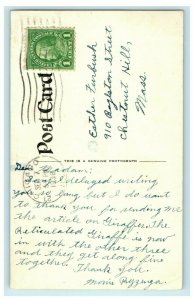 1 CENT 1
Post Card
Esther Furbush
910 Boylston Street
Chestnut Hill,
Mass.
THIS IS A GENUINE PHOTOGRAPH
Dear Madam:
Sorry I delayed writing
you so long but I do want
to thank you for sending me
the article on Giraffes. The
Reticulated Giraffe is now
in with the other three
and they get along fine
together. Thank you.